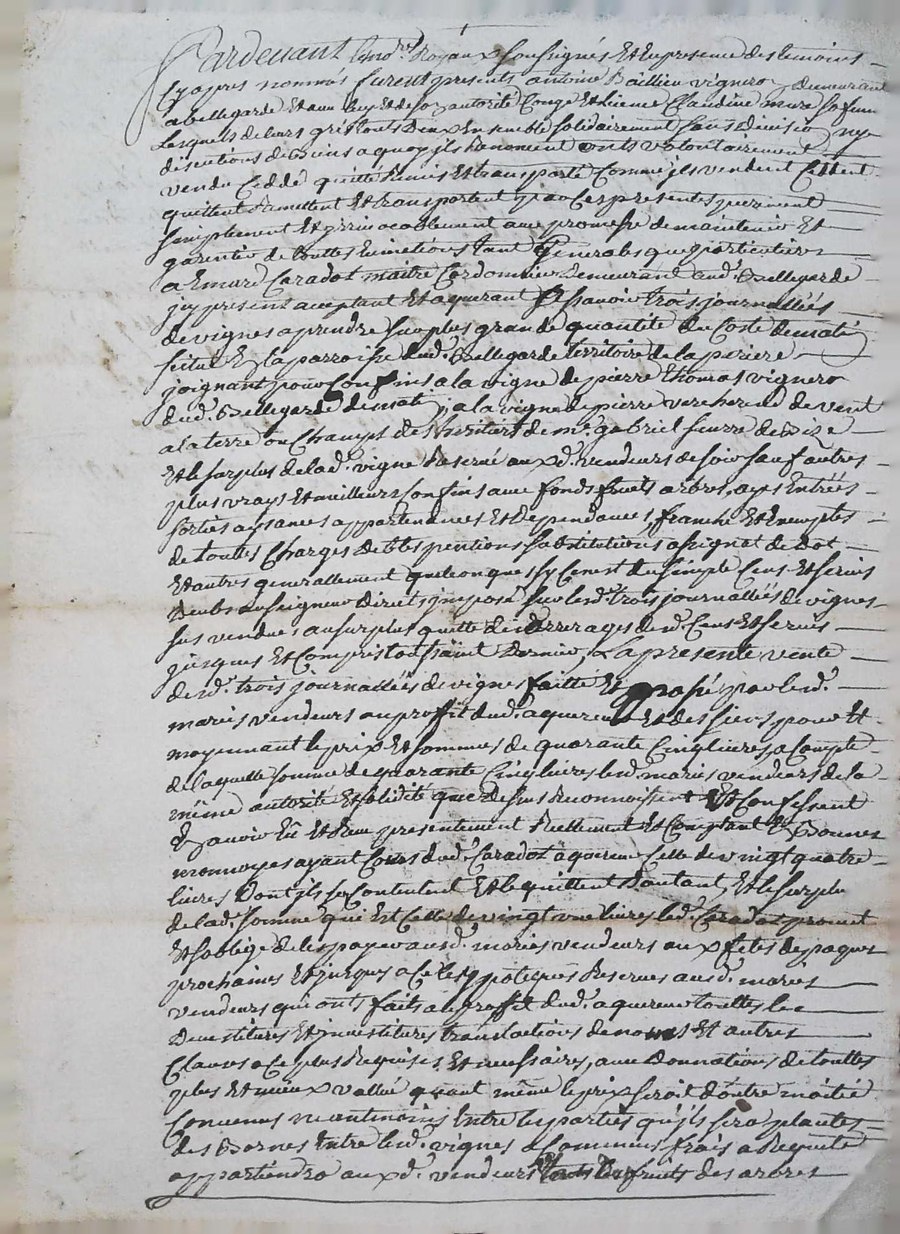 Pardevant les no.res Royaux soussignés Et En presence des temoins
Cy apres nommés furent presents antoine Baillieu vigneron demeurant
a bellegarde Et aux Roy Et de son autorité Congé Et licence Claudine mure sa femme
Lesquels de leurs gré tous Deux Ensemble solidairement sans division ny
discutions de Biens a quoy ils Renoncent onts volontairement
vendu Ceddé quitté Remis Et transporté Comme jls vendent Ceddent
quittent Remettent Et transportent par Ces presentes purement
simplement Et jrrevocablement aux promesse de maintenir Et
garentir de touttes Evinctions tant Generales que particulieres
a Caradot maitre Cordonnier Demeurant aud. Bellegarde
jcy present acceptant Et aquerant Assavoir trois journallées
de vignes a prendre Sur plus grande quantité du Coste de matin
scitué En la parroisse dud. Bellegarde territoire de la
joignant pour Confins a la vigne de pierre thomas vigneron
dud. Bellegarde de matin, a la vigne de pierre verchere de vent
a la terre ou Champs des heritiers de me gabriel de Bize
Et le surplus de lad. vigne Reservé aux d. vendeurs de soir sauf autres
plus vrays Et meilleurs Confins avec fonds fruits arbres, ayes Entrées
sorties aysances appartenances Et Dependances, franche Et Exemptes
de touttes Charges Debtes pentions substitutions assignat de Dot
Et autres generallement quelconques sy Ce n'est du simple Cens Et servis
Deubs au seigneur Direct jmposé sur lesd. trois journallées de vignes
sus vendues au surplus quitte des arrerages dud. Cens Et servis
jusques Et Compris la saint Dernier, La presente vente
desd. trois journallées de vignes faitte Et passé par lesd.
mariés vendeurs au proffit dud. aquereur Et des siens, pour Et
moyennant le prix Et sommes de quarante Cinq livres, a Compte
de laquelle somme de quarante Cinq livres lesd. mariés vendeurs de la
même autorité Et solidité que dessus Reconnoissent Et Confessent
avoir Eû Et Reçu presentement Reellement Et Comptant En Bonnes
monnoyes ayant Cours dud. Caradot aquereur Celle de vingt quatre
livres Dont jls se Contentent Et le quittent D'autant, Et le surplus
de lad. somme qui Est Celle de vingt une livres led. Caradot promet
Et soblige de les payer ausd. mariés vendeurs aux fêtes de paques
prochaines Et jusques a Ce les ypoteques Reservés ausd. mariés
vendeurs qui onts faits au proffit dud. aquereur touttes les
Devestitures Et jnvestitures translactions de noms Et autres
Clauses a Ce plus Requises Et necessaires, avec Donnations de touttes
plus Et mieux vallue quant même le prix seroit d'outre moitié
Convenus neantmoins Entre les parties qu'jls sera plantés
des Bornes Entre lesd. vignes a Communs frais a
appartiendra aux d. vendeurs touts les fruits des arbres